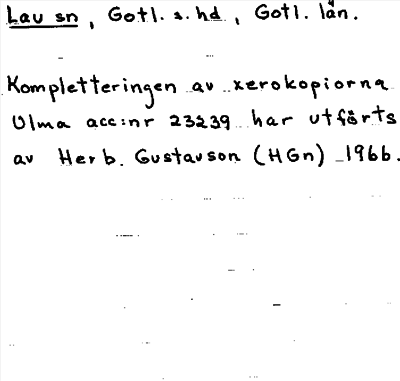 Lau sn, Gotl. s. hd, Gotl. län.
Kompletteringen av xerokopiorna
Ulma acc:nr 23239 har utförts
av Herb. Gustavson (HGn) 1966.